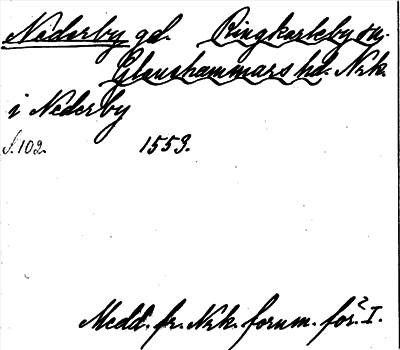 Nederby gd. Ringkarleby sn.
Glanshammars hd. Nrk.
i Nederby
s. 102. 1553.
Medd. fr. Nrk. fornm. för. I.